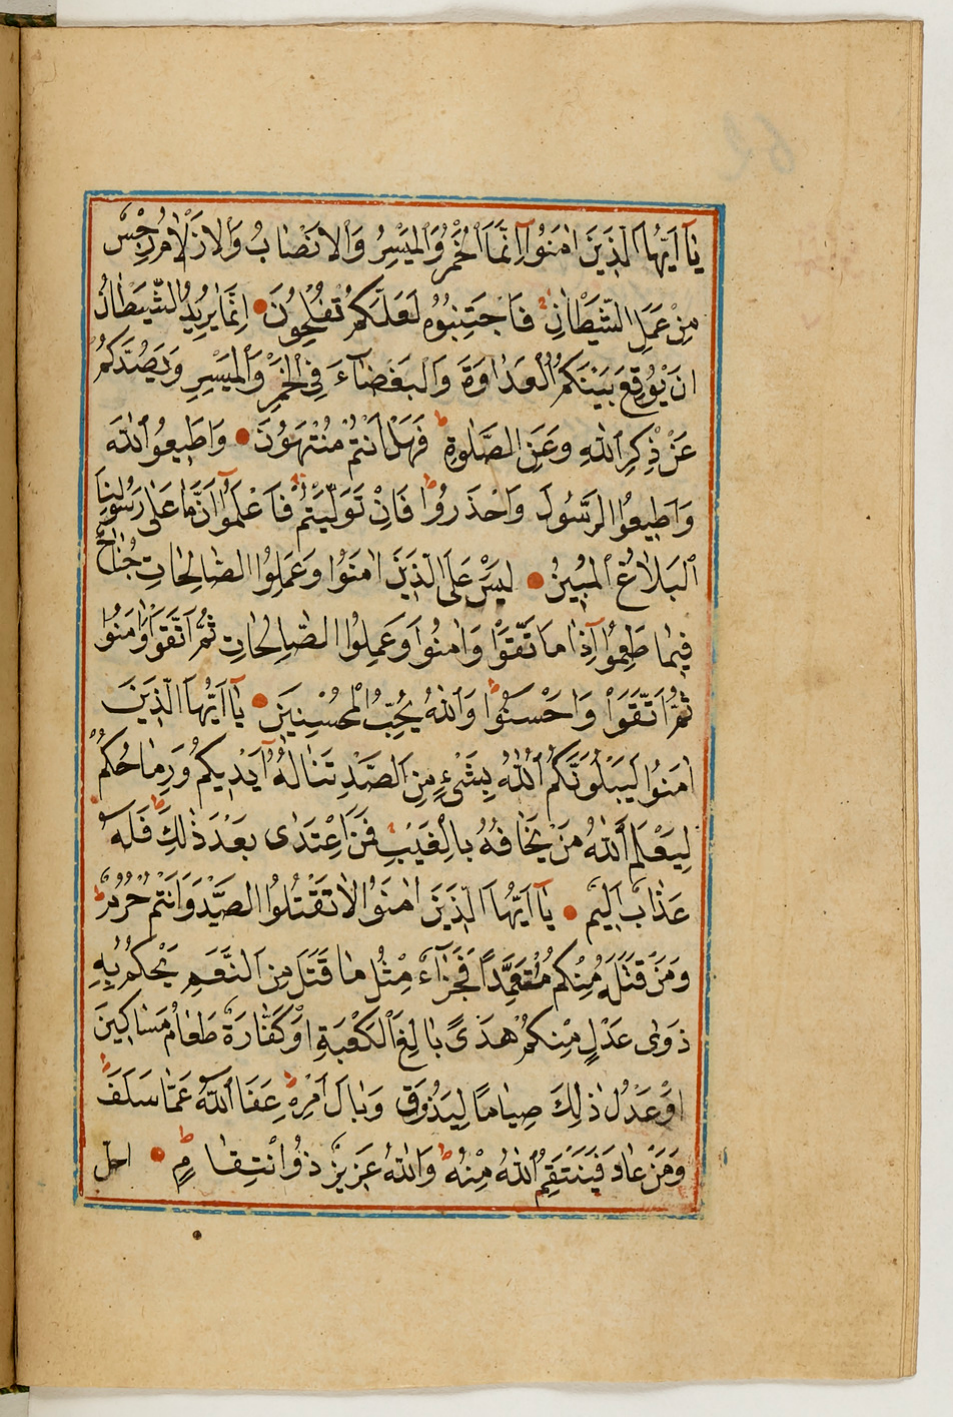 يَا أَيُّهَا الَّذِينَ اٰمَنُوا اِنَّمَا الْخَمْرُ وَالْمَيْسِرُ وَالْاَنْصَابُ وَالْاَزْلَامُ رِجْسٌ
مِنْ عَمَلِ الشَّيْطَانِ فَاجْتَنِبُوهُ لَعَلَّكُمْ تُفْلِحُونَ اِنَّمَا يُرِيدُ الشَّيْطَانُ
اَنْ يُوقِعَ بَيْنَكُمُ الْعَدَاوَةَ وَالْبَغْضَاءَ فِي الْخَمْرِ وَالْمَيْسِرِ وَيَصُدَّكُمْ
عَنْ ذِكْرِ اللّٰهِ وَعَنِ الصَّلٰوةِ فَهَلْ اَنْتُمْ مُنْتَهُونَ وَاَطِيعُوا اللّٰهَ
وَاَطِيعُوا الرَّسُولَ وَاحْذَرُوا فَاِنْ تَوَلَّيْتُمْ فَاعْلَمُوا اَنَّمَا عَلٰى رَسُولِنَا
الْبَلَاغُ الْمُبِينُ لَيْسَ عَلَى الَّذِينَ اٰمَنُوا وَعَمِلُوا الصَّالِحَاتِ جُنَاحٌ
فِيمَا طَعِمُوا اِذَا مَا تَّقَوْا وَاٰمَنُوا وَعَمِلُوا الصَّالِحَاتِ ثُمَّ اتَّقَوْا وَاٰمَنُوا
ثُمَّ اتَّقَوْا وَاَحْسَنُوا وَاللّٰهُ يُحِبُّ الْمُحْسِنِينَ يَا اَيُّهَا الَّذِينَ
اٰمَنُوا لَيَبْلُوَنَّكُمُ اللّٰهُ بِشَيْءٍ مِنَ الصَّيْدِ تَنَالُهُ اَيْدِيكُمْ وَرِمَاحُكُمْ
لِيَعْلَمَ اللّٰهُ مَنْ يَخَافُهُ بِالْغَيْبِ فَمَنِ اعْتَدٰى بَعْدَ ذٰلِكَ فَلَهُ
عَذَابٌ اَلِيمٌ يَا اَيُّهَا الَّذِينَ اٰمَنُوا لَا تَقْتُلُوا الصَّيْدَ وَاَنْتُمْ حُرُمٌ
وَمَنْ قَتَلَهُ مِنْكُمْ مُتَعَمِّدًا فَجَزَاءٌ مِثْلُ مَا قَتَلَ مِنَ النَّعَمِ يَحْكُمُ بِهِ
ذَوٰى عَدْلٍ مِنْكُمْ هَدْيًا بَالِغَ الْكَعْبَةِ اَوْ كَفَّارَةٌ طَعَامُ مَسَاكِينَ
اَوْ عَدْلُ ذٰلِكَ صِيَامًا لِيَذُوقَ وَبَالَ اَمْرِهِ عَفَا اللّٰهُ عَمَّا سَلَفَ
وَمَنْ عَادَ فَيَنْتَقِمُ اللّٰهُ مِنْهُ وَاللّٰهُ عَزِيزٌ ذُو انْتِقَامٍ احل